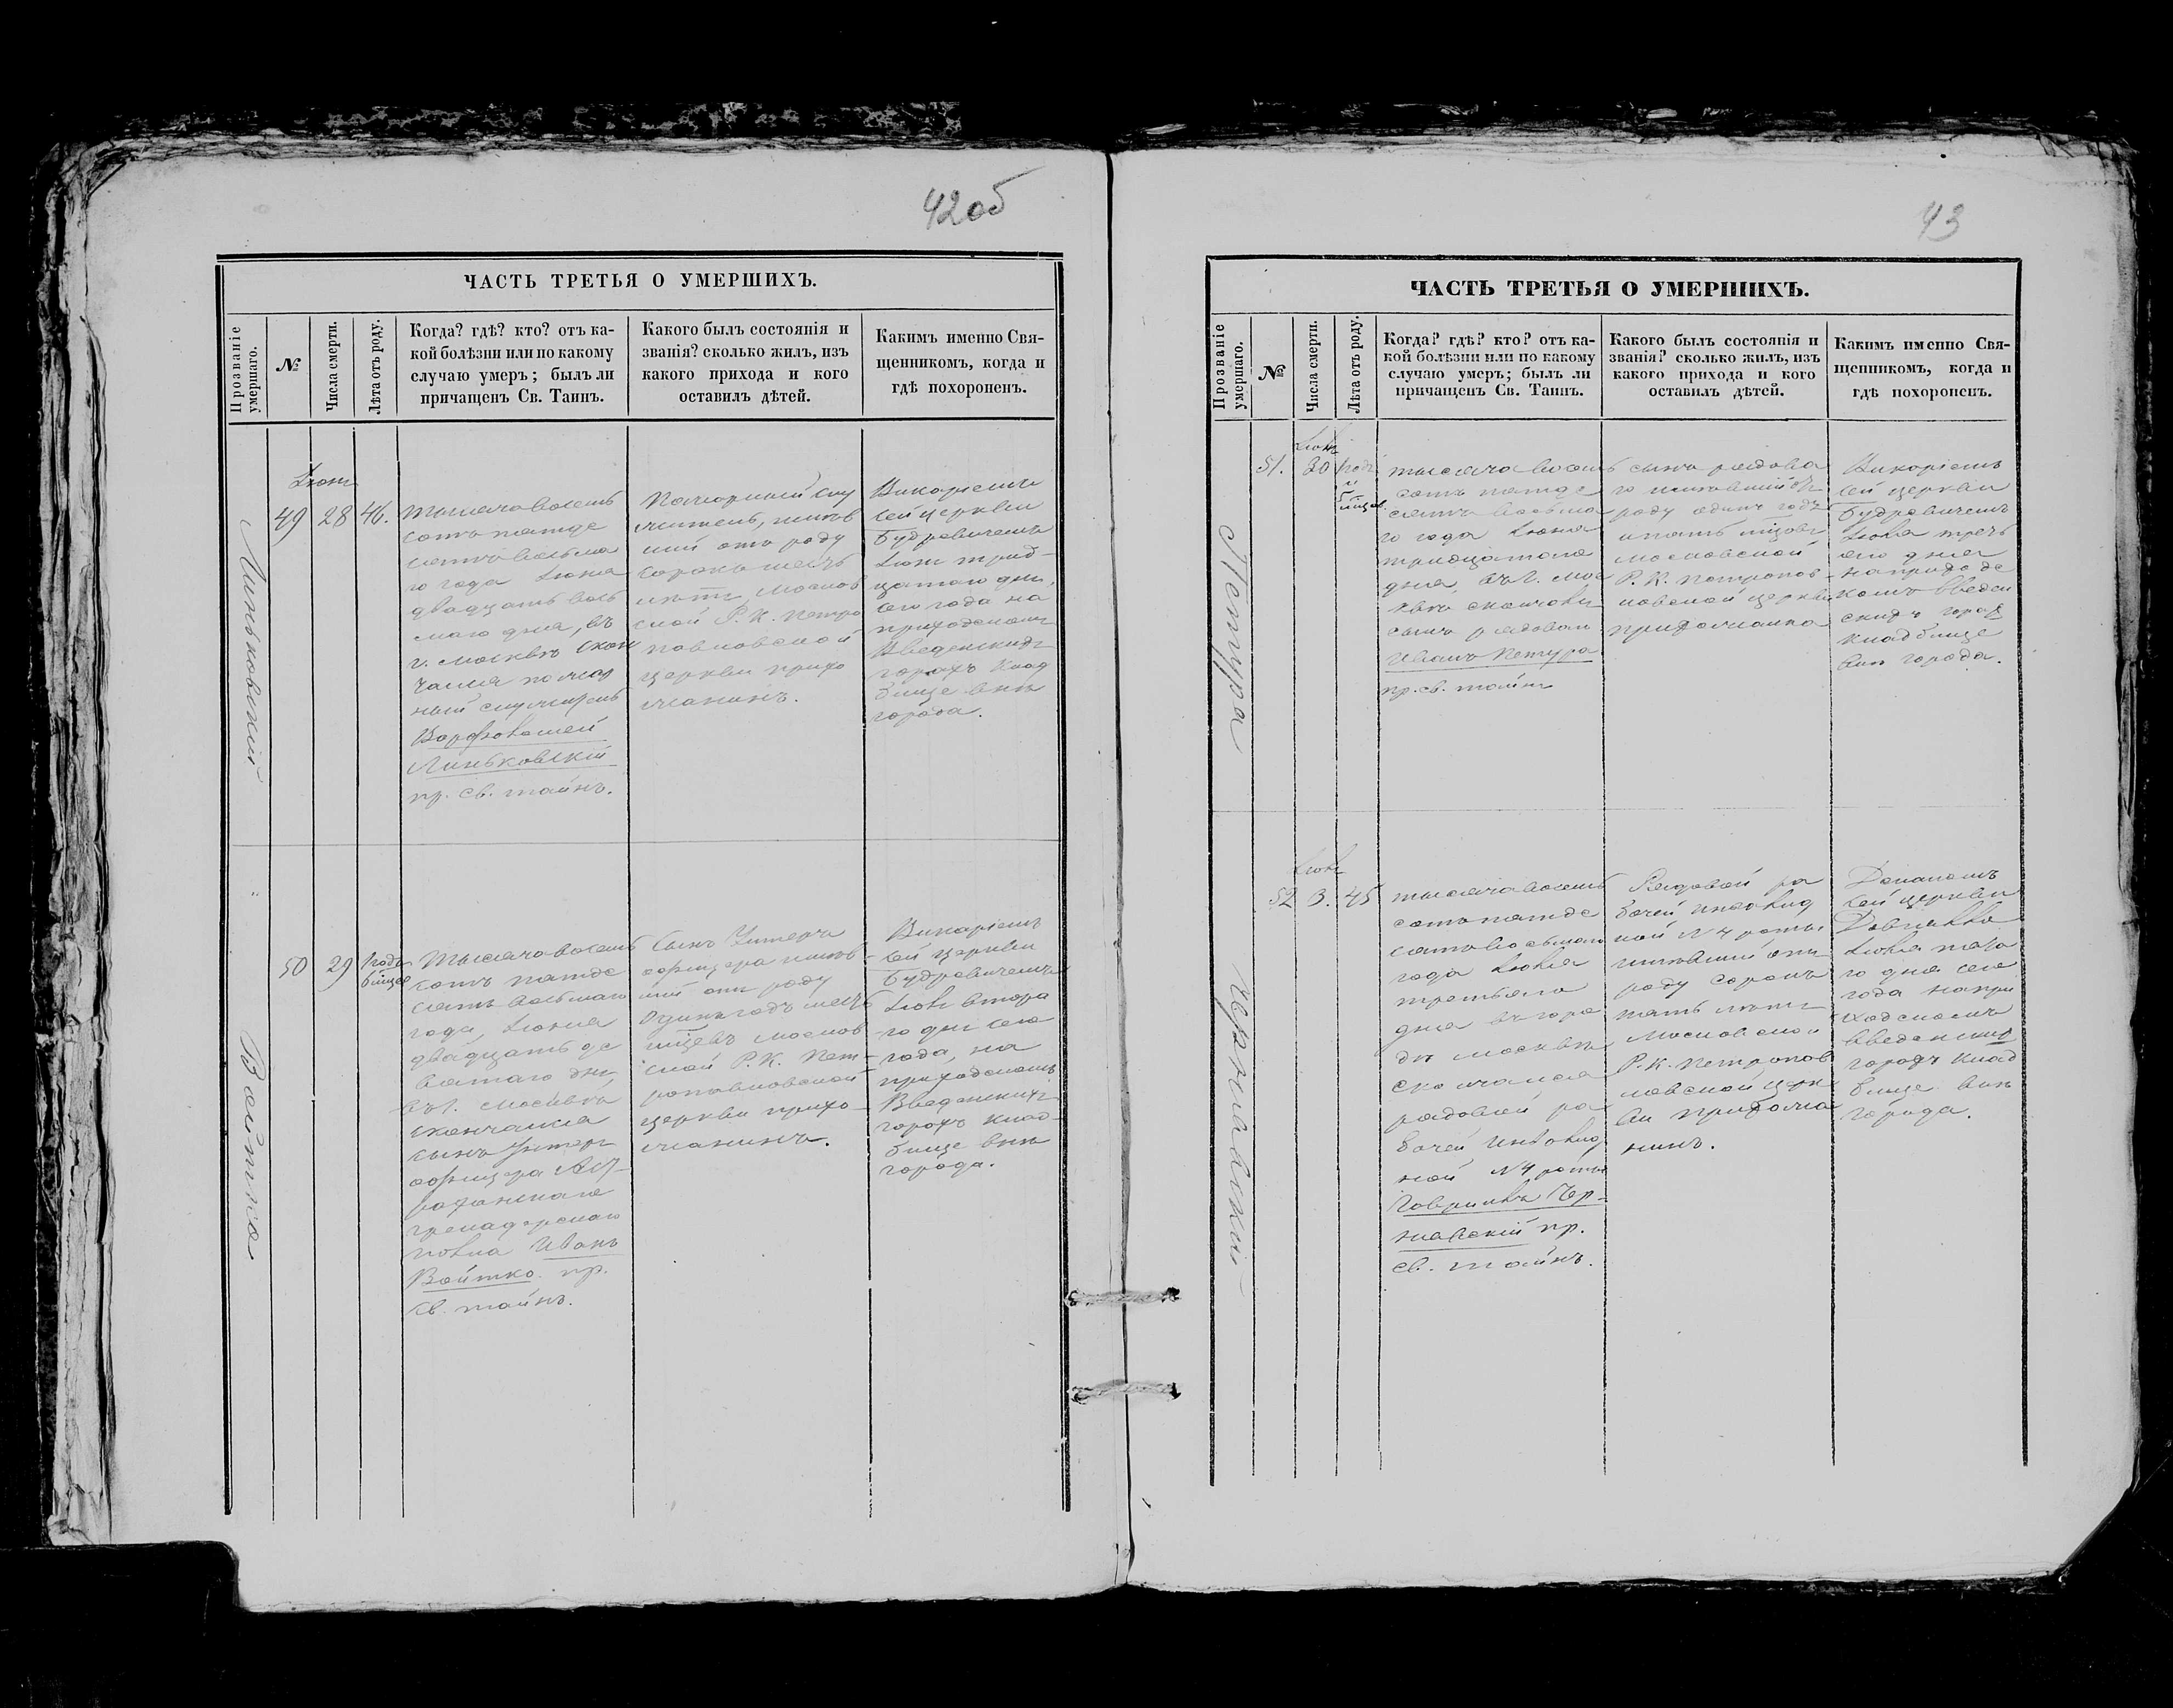 42об
ЧАСТЬ ТРЕТЬЯ О УМЕРШИХЪ.
Прозваніе умершаго.
№
Числа смерти.
Лѣта отъ роду.
Когда? гдѣ? кто? отъ ка-
кой болѣзни или по какому
случаю умеръ; былъ ли
причащенъ Св. Таинъ.
Какого былъ состоянія и
званія? сколько жилъ, изъ
какого прихода и кого
оставилъ дѣтей.
Каким именно Свя-
щенникомъ, когда и
гдѣ похороненъ.
Линьковскій
Іюнь
49
28
46.
Тысяча восемь
сотъ пятьде
сятъ восьма
го года Іюня
двадцать вось
маго дня, въ
г. Москвѣ скон
чался
ный служитель
Варфоломей
Линьковскій
пр. св. тайнъ.
слу
житель, жив
шій отъ роду
сорокъ шесть
лѣтъ, Москов
ской Р. К. Петро
павловской
церкви прихо
жанинъ.
Викаріемъ
сей церкви
Будревичемъ
Іюня трид-
цатаго дня,
сего года на
приходскомъ
Введенскихъ
горахъ клад
бище внѣ
города.
Войтко
50
29
1 годъ
6 мцев
Тысяча восемь
сотъ пятьде
сятъ восьмаго
года, Іюня
двадцать де
вятаго дня,
въ г. Москвѣ
скончался
сынъ Унтеръ
офицера Аст-
раханскаго
гренадерскаго
полка Иванъ
Войтко пр.
св. тайнъ.
Сынъ Унтеръ
офицера жив-
шій отъ роду
одинъ годъ шесть
мцевъ Москов
ской Р. К. Пет-
ропавловской
церкви прихо-
жанинъ.
Викаріемъ
сей церкви
Будревичемъ
Іюля втора
го дня сего
года, на
приходскомъ
Введенскихъ
горахъ клад-
бище внѣ
города.
43
ЧАСТЬ ТРЕТЬЯ О УМЕРШИХЪ.
Прозваніе умершаго.
№
Числа смерти.
Лѣта отъ роду.
Когда? гдѣ? кто? отъ ка-
кой болѣзни или по какому
случаю умеръ; былъ ли
причащенъ Св. Таинъ.
Какого былъ состоянія и
званія? сколько жилъ, изъ
какого прихода и кого
оставилъ дѣтей.
Каким именно Свя-
щенникомъ, когда и
гдѣ похороненъ.
Петура
Іюнь
51.
30
1 годъ
и
5
мцев
тысяча восемь
сотъ пятьде
сятъ восьма
го года Іюня
тридцатаго
дня въ г. Мос
квѣ скончался
сынъ рядоваго
Иванъ Петура
пр. св. тайнъ
сынъ рядова
го жившій отъ
роду одинъ годъ
и пять мцевъ
Московской
Р. К. Петропав
ловской церкви
прихожанка
Викаріемъ
сей церкви
Будревичемъ
Іюля треть
яго дня
на приходс
комъ Введен
скихъ горахъ
кладбище
внѣ города.
Чернявскій
Іюль
52
3.
45
тысяча восемь
сотъ пятьде
сятъ восьмаго
года Іюля
третьяго
дня въ горо
дѣ Москвѣ
скончался
рядовой ра
бочей инвалид
ной N 4 роты
Гавриилъ Чер-
нявскій пр.
св. тайнъ.
Рядовой ра
бочей инвалид
ной N 4 роты
жившій отъ
роду сорокъ
пять лѣтъ
Московской
Р. К. Петропав
ловской церк
ви прихожа
нинъ.
Деканомъ
сей церкви
Іюля пята
го дня сего
года на при
ходскомъ
Введенскихъ
горахъ клад
бище внѣ
города.